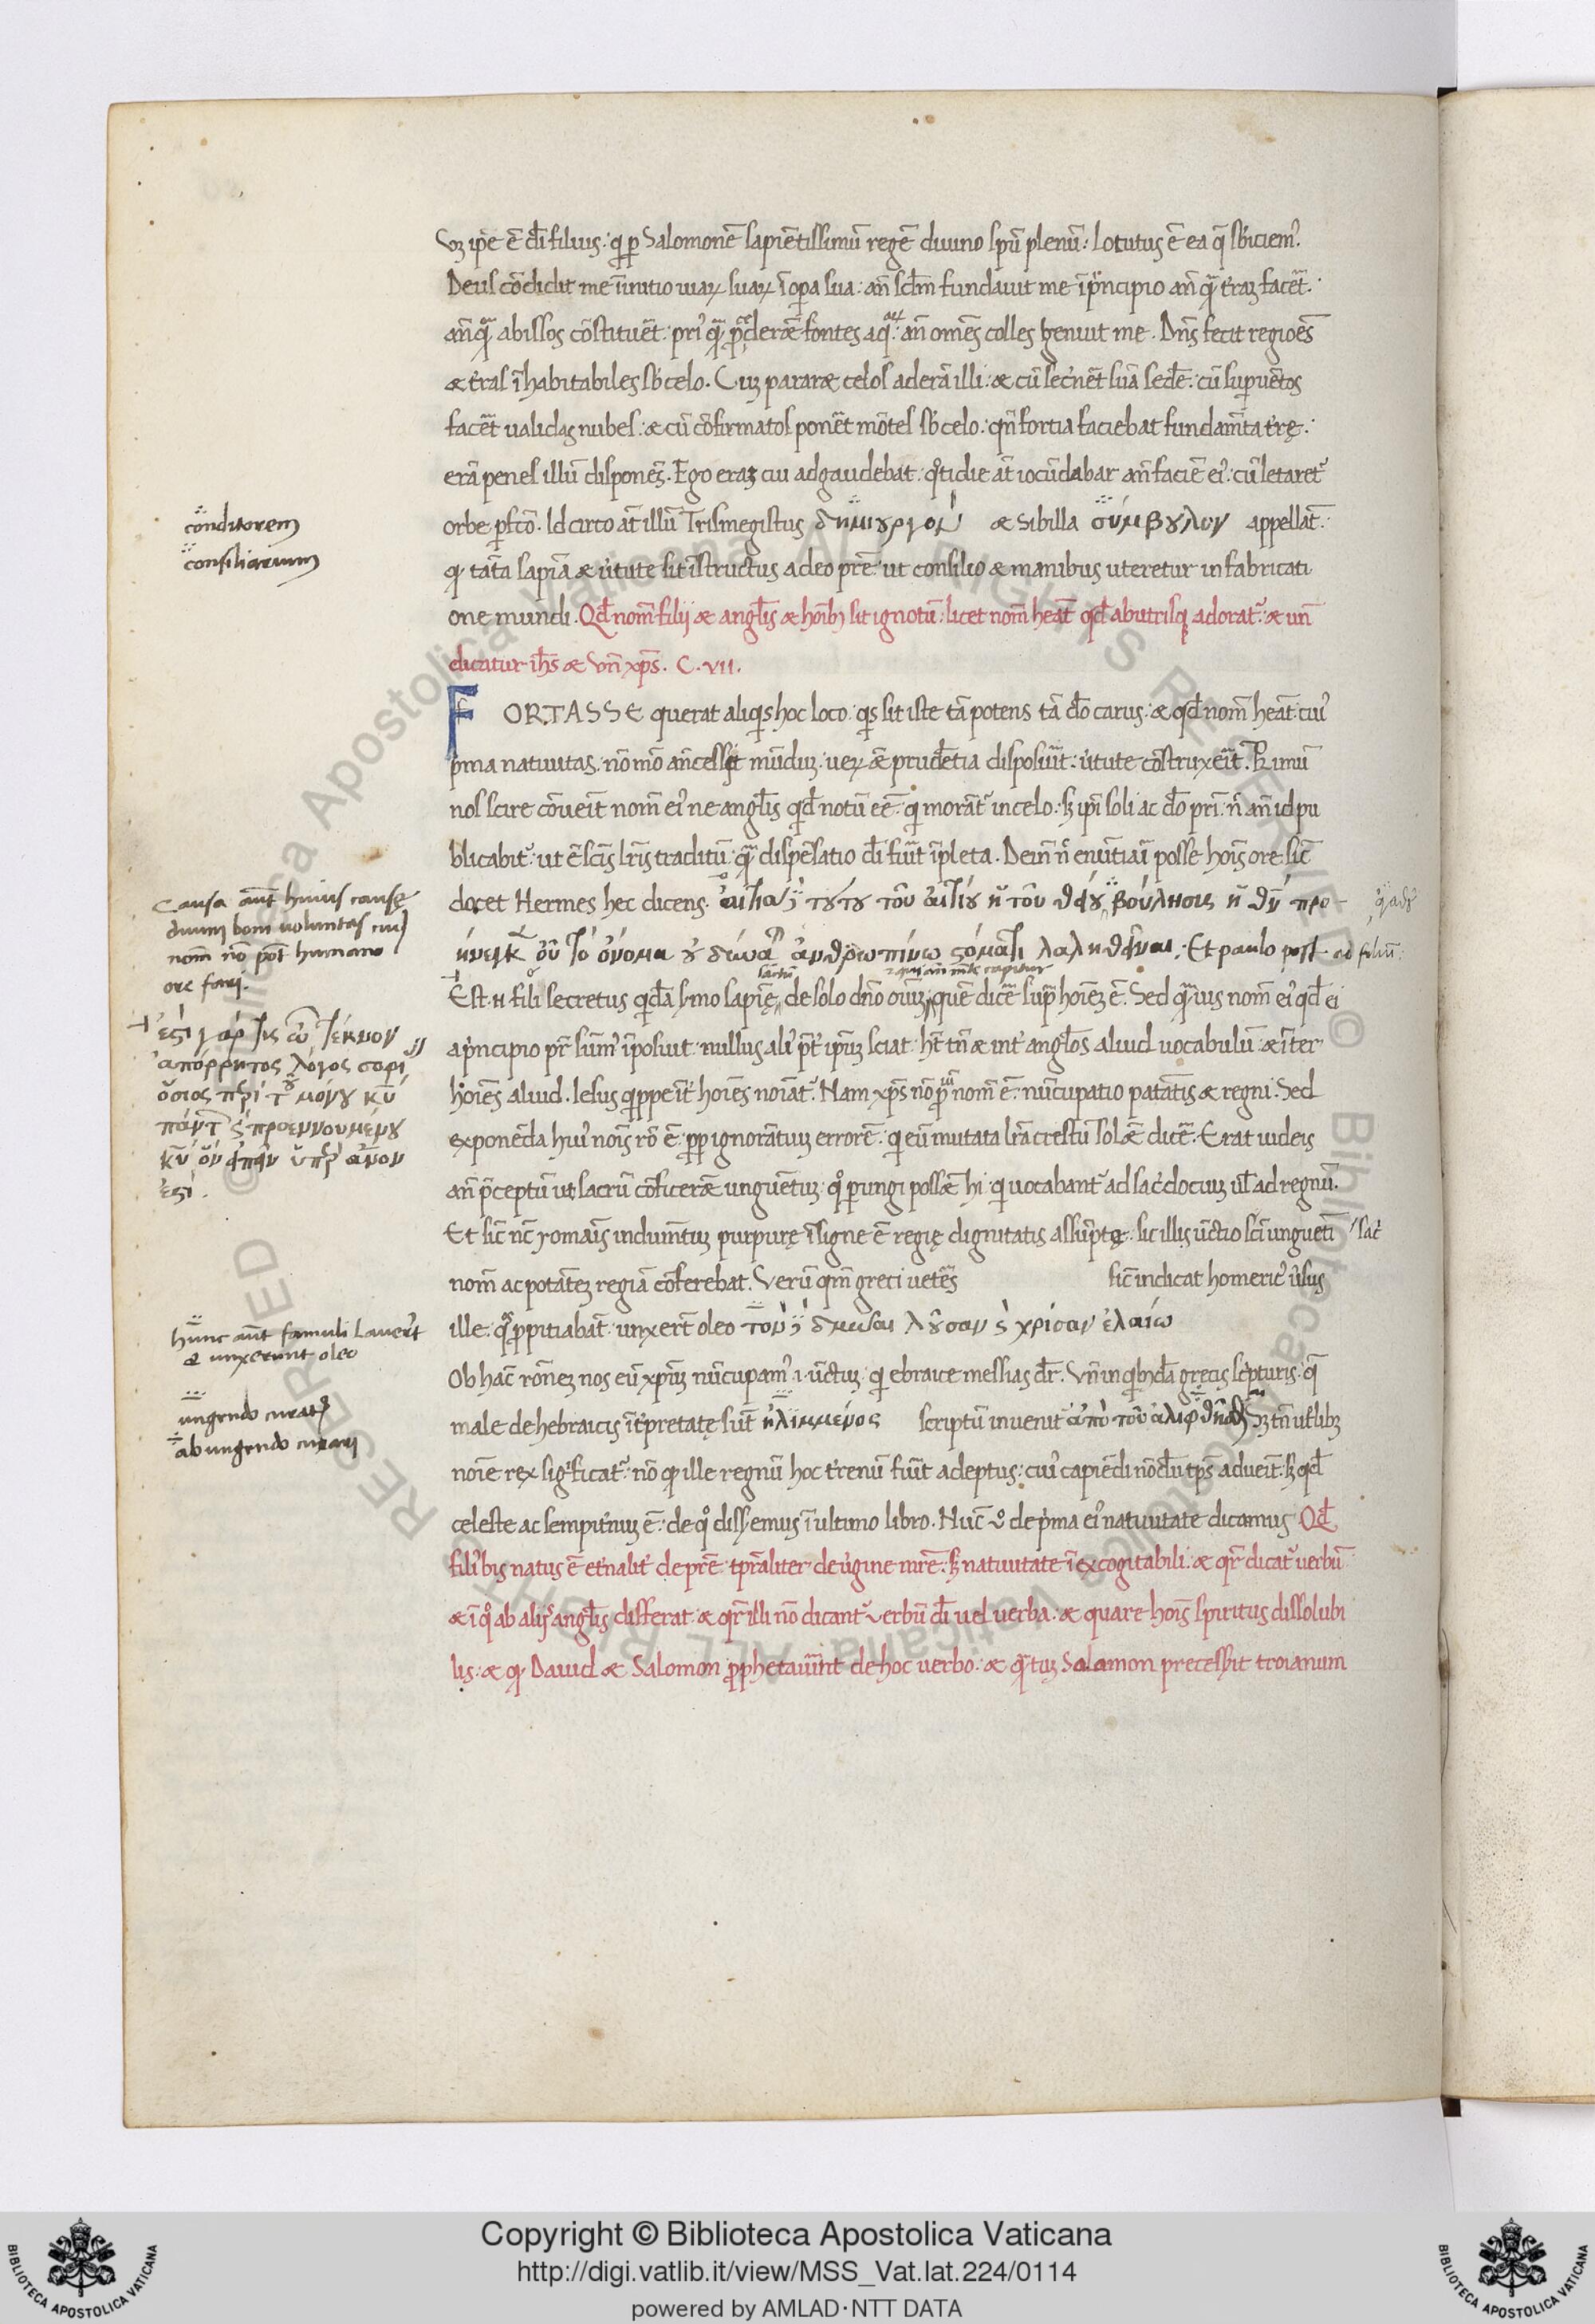 Vꝫ ip̄e ē dī filius: q̇ ꝑ Salomonē sapiētissimū regē diuino sp̄u plenū: Locutus ē ea q̄ sb̄iciemꝰ.
Deus cōdidit me īinitio uiaꝝ suaꝝ īoꝑa sua: an̄ sc̄lm fundauit me īpͥncipio an̄ q̄ꝫ t̄raꝫ facēt:
an̄q̄ꝫ abissos cōstituēt: priꝰ q̄ꝫ ꝓderēt fontes aqͣꝝ: an̄ om̄es colles genuit me. Dn̄s fecit regiōes
æ t̄ras īhabitabiles sb̄ celo. Cuꝫ pararæ celos aderā illi: æ cū sec̄net suā sedē: cū suꝑ uētos
facēt ualidas nubes: æ cū cōfirmatos ponēt mōtes sb̄ celo: qn̄ fortia faciebat fundam̄ta t̄rę:
erā penes illū disponēs. Ego eraꝫ cui adgaudebat: qͦtidie āt iocūdabar an̄ faciē eiꝰ: cū letaretᷣ
orbe ꝑfc̄o. Idcirco āt illū Trismegistus δημιȣργὸν æ Sibilla σύμβȣλον appellat:
q tāta sapīa æ u̓tute sit īstructus a deo pr̄e: ut consilio æ manibus uteretur in fabricati
one mundi. Qd̄ nom̄ filij æ angl̄is æ hoīb; sit ignotū: licet nom̄ heāt qd̄ ab utrisq̢ adoratᷣ: æ un̄
dicatur ih̄s æ un̄ xp̄s. C. VII.
FORTASSE querat aliqis hoc loco: qͥs sit iste tā potens tā dō carus: æ qd̄ nom̄ heāt: cuiꝰ
pͥma natiuitas: nō mō an̄cessit mūduꝫ: ueꝝ ǣ prudētia disposuit: u̓tute cōstruxeīt. Primū
nos scire cōueīt nom̄ eiꝰ ne angl̄is qd̄ notū eē: qi morātᷣ in celo: sꝫ ip̄i soli ac dō pri: n̄ an̄ id pu
blicabitᷣ: ut ē scīs lr̄is traditū: q̄ꝫ dispēsatio dī fuīt īpleta. Dein̄ n̄ enūtiari posse hoīs ore sic̄
docet Hermes hec dicens: αἰτία δὲ τȣ́τȣ τοῦ αἰτίȣ ἡ τοῦ θείȣ βούλησις ἡ θῦ προ-
ήνεγκεν οὗ τὸ ὄνομα ȣ̓ δύναται ἀνθρωπίνω στόματι λαληθῆναι: Et paulo post ad filiū:
Est n̄ fili secretus qd̄ā s̓mo sapīę, de solo dn̄o oīuꝫ, quē dicē̄ suꝑ hoīeꝫ ē. Sed q̄ꝫuis nom̄ eiꝰ qd̄ ei
a pͥncipio pr̄ sūmꝰ īposuit: nullus aliꝰ pt̄ ip̄uꝫ sciat: ht̄ tn̄ æ int̓ angl̄os aliud uocabulū: æ īter
hoīes aliud. Iesus qͥppe īt̓ hoīes noīatᷣ. Nam xp̄s nō ꝓpͥū nom̄ ē: nūcupatio potātis æ regni. Sed
exponēda huiꝰ noīs rō ē: ꝓp ignorātiuꝫ errorē: qi eū mutata lr̄a crestū solēt dicē̄. Erat iudeis
an̄ p̄ceptū ut sacrū cōficerēt unguētuꝫ: qͦ ꝑungi possēt hi: qi uocabantᷣ ad sac̓docuiꝫ ul̄ ad regnū.
Et sic̄ nc̄ romaīs indum̄tuꝫ purpurę īsigne ē regię dignitatis assūptę: sic illis ūctio sci unguētī / sac̓
nom̄ ac potātēꝫ regiā cōferebat. Verū qm̄ greci uet̓es sic̄ indicat homericꝰ u̓sus
ille: qͦs ꝓpitiabāt: unxer̄t oleo τοὺς δὲ δμωαὶ λȣ͂σαν ϗ χρίσαν ἐλαίω
Ob hac̄ rōneꝫ nos eū xp̄uꝫ nūcupamꝰ .i. ūctuꝫ: qi ebraice messias dr̄. Vn̄ in qͥbꝰdā grecis sc̓pturis: q̄
male de hebraicis īt̓pretatę sūt ἠλιμμένος scriptū inuenit̄ ἀπὸ τοῦ ἀλειφθῆναι Sꝫ tn̄ utl̓ibꝫ
noīe rex sig̓ificatᷣ: nō q ille regnū hoc t̓renū fuīt adeptus: cuiꝰ capiēdi nōdū tp̄s adueīt: sꝫ qd̄
celeste ac sempit̓nuꝫ ē: de qͦ diss̓emus ī ultimo libro. Nūc uͦ de pͥma eiꝰ natiuitate dicamus Qd̄
filiꝰ bis natus ē et̓nalit̓ de pr̄e: tꝑaliter de u̓gine mr̄e: sꝫ natiuitate īexcogitabili: æ qr̄ dicatᷣ uerbū
æ ī qͦ ab alijs angl̄is differat æ qr̄ illi nō dicantᷣ uerbū dī uel uerba: æ quare hoīs spiritus dissolubi
lis: æ q Dauid æ Salomon ꝓphetauīt de hoc uerbo: æ q̄tuꝫ Salamon precessit troianum
conditorem
consiliarium
Causa aūt huius causę
diuini boni uoluntas cuiꝰ
nom̄ nō pōt humano
ore fari.
ἔστι γάρ τις ὦ τέκνον
ἀπόρρητος λόγος σοφί
ὅσιος περὶ τοῦ μόνȣ κῡ
πάντων ϗ προεννουμένȣ
κῡ ὃν εἰπεῖν ὑπὲρ ἄνον
ἐστί.
hunc aūt famuli lauer̄t
& unxerunt oleo
ungendo curatꝰ
ab ungendo curari
Copyright © Biblioteca Apostolica Vaticana
http://digi.vatlib.it/view/MSS_Vat.lat.224/0114
powered by AMLAD·NTT DATA
BIBLIOTECA APOSTOLICA VATICANA
BIBLIOTECA APOSTOLICA VATICANA